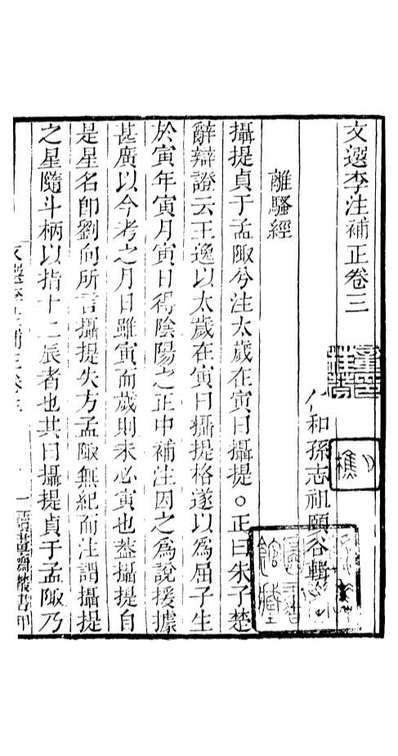 文選李注補正卷三
仁和孫志祖頤谷輯
離騷經
攝提貞于孟陬兮注太歲在寅曰攝提○正曰朱子楚
辭辯證云王逸以太歲在寅曰攝提格遂以為屈子生
於寅年寅月寅日得陰陽之正中補注因之為說援據
甚廣以今考之月日雖寅而歲則未必寅也蓋攝提自
是星名卽劉向所言攝提失方孟陬無紀而注謂攝提
之星隨斗柄以指十二辰者也其曰攝提貞于孟陬乃
文選李注補正卷三
一
讀畫齋叢書